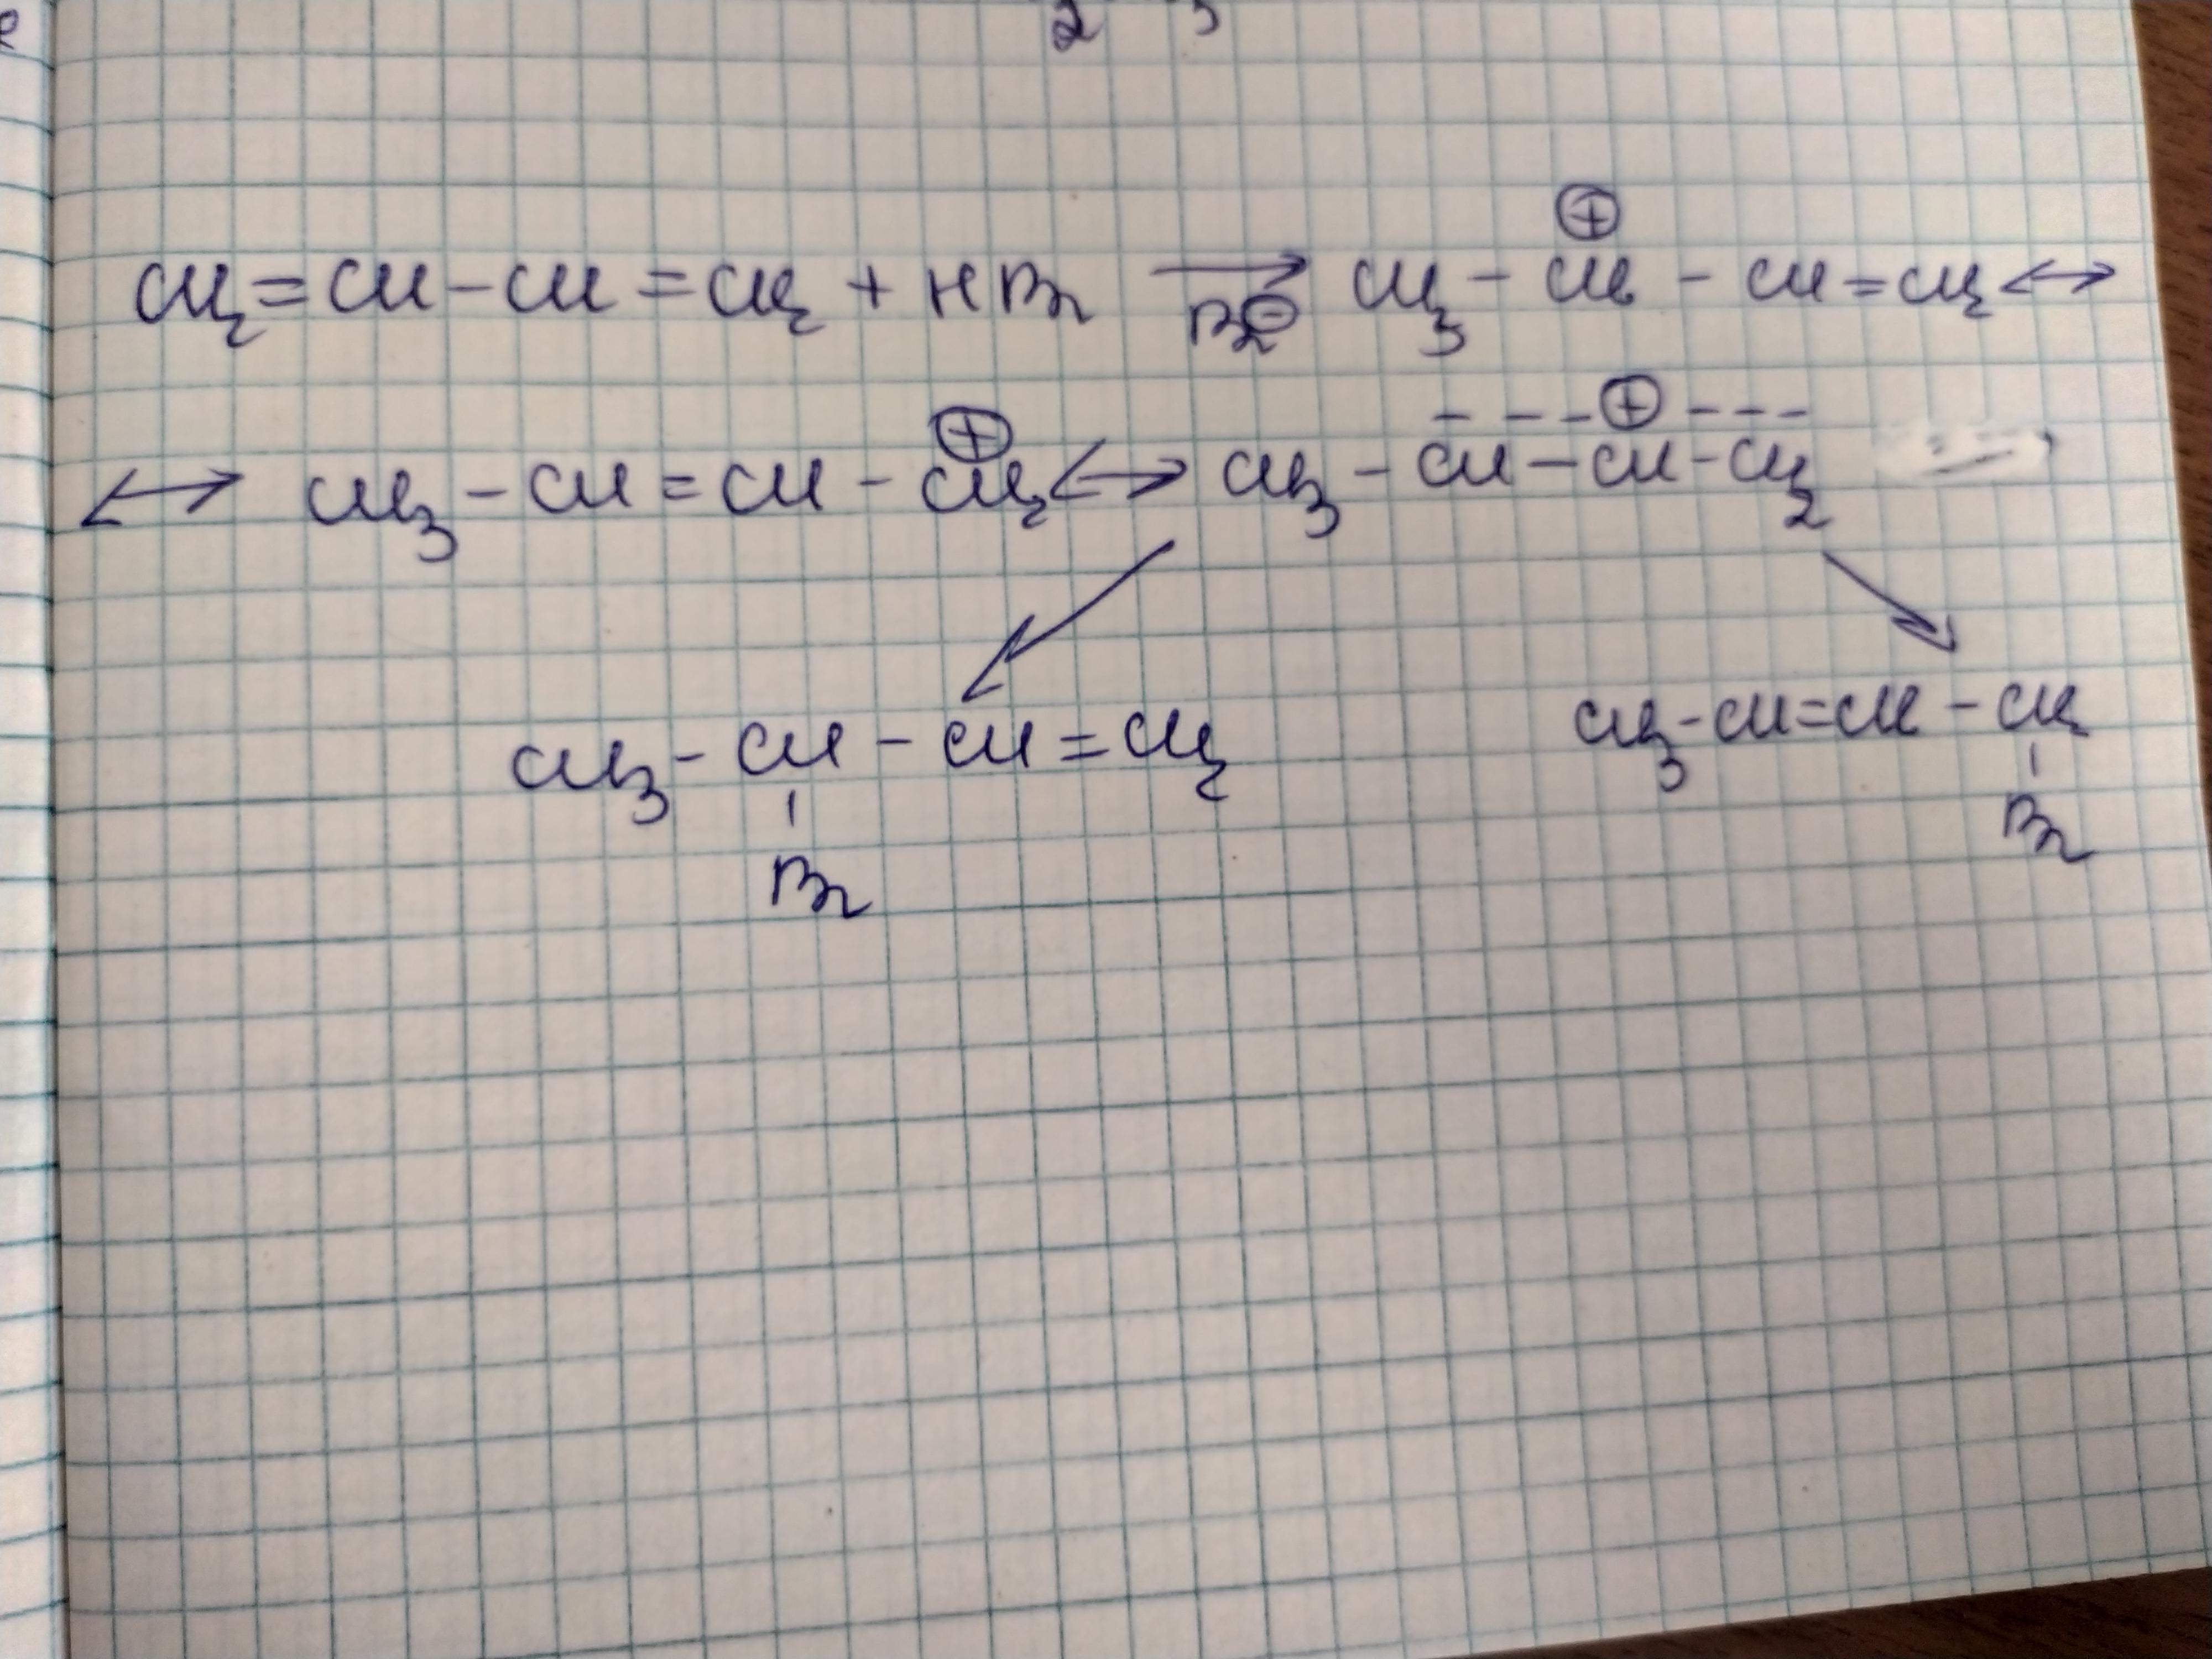 2 3
CH₂=CH-CH=CH₂ + HBr → CH₃ - CH - CH = CH₂ ↔
Br⊖
⊕
↔ CH₃ - CH = CH - CH₂ ↔ CH₃ - CH - CH - CH₂
⊕
- - - ⊕ - - -
CH₃ - CH - CH = CH₂
Br
CH₃ - CH = CH - CH₂
Br